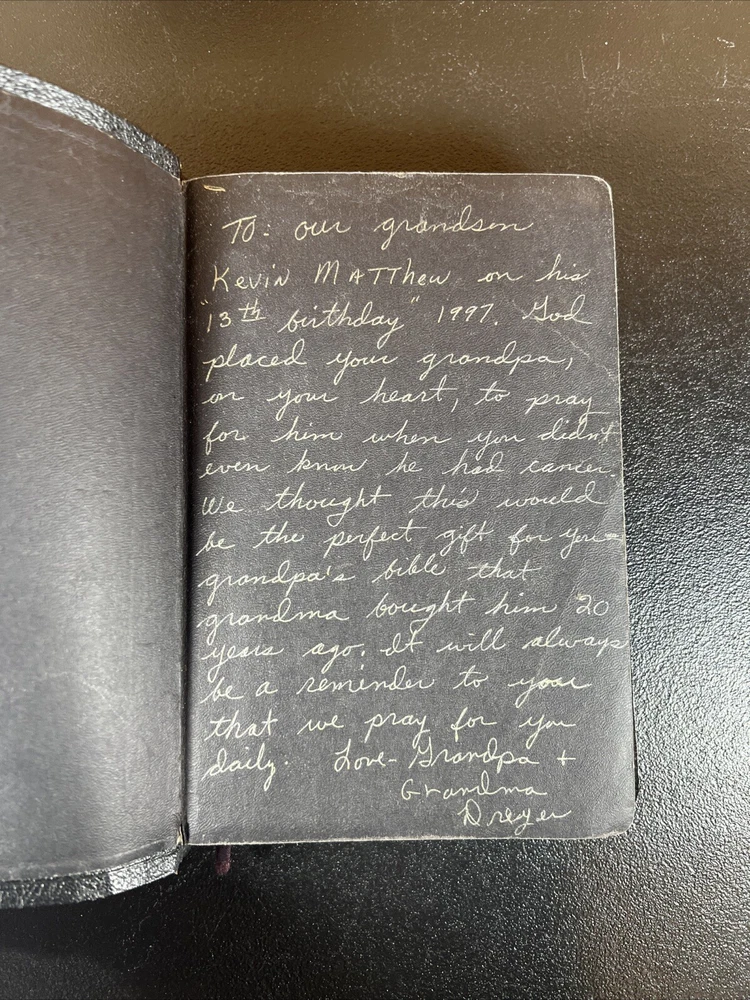 To: our grandson
Kevin MATThew on his
"13th birthday" 1997. God
placed your grandpa,
on your heart, to pray
for him when you didn't
even know he had cancer.
We thought this would
be the perfect gift for you-
grandpa's bible that
grandma bought him 20
years ago. It will always
be a reminder to you
that we pray for you
daily. Love- Grandpa +
Grandma
Dreyer